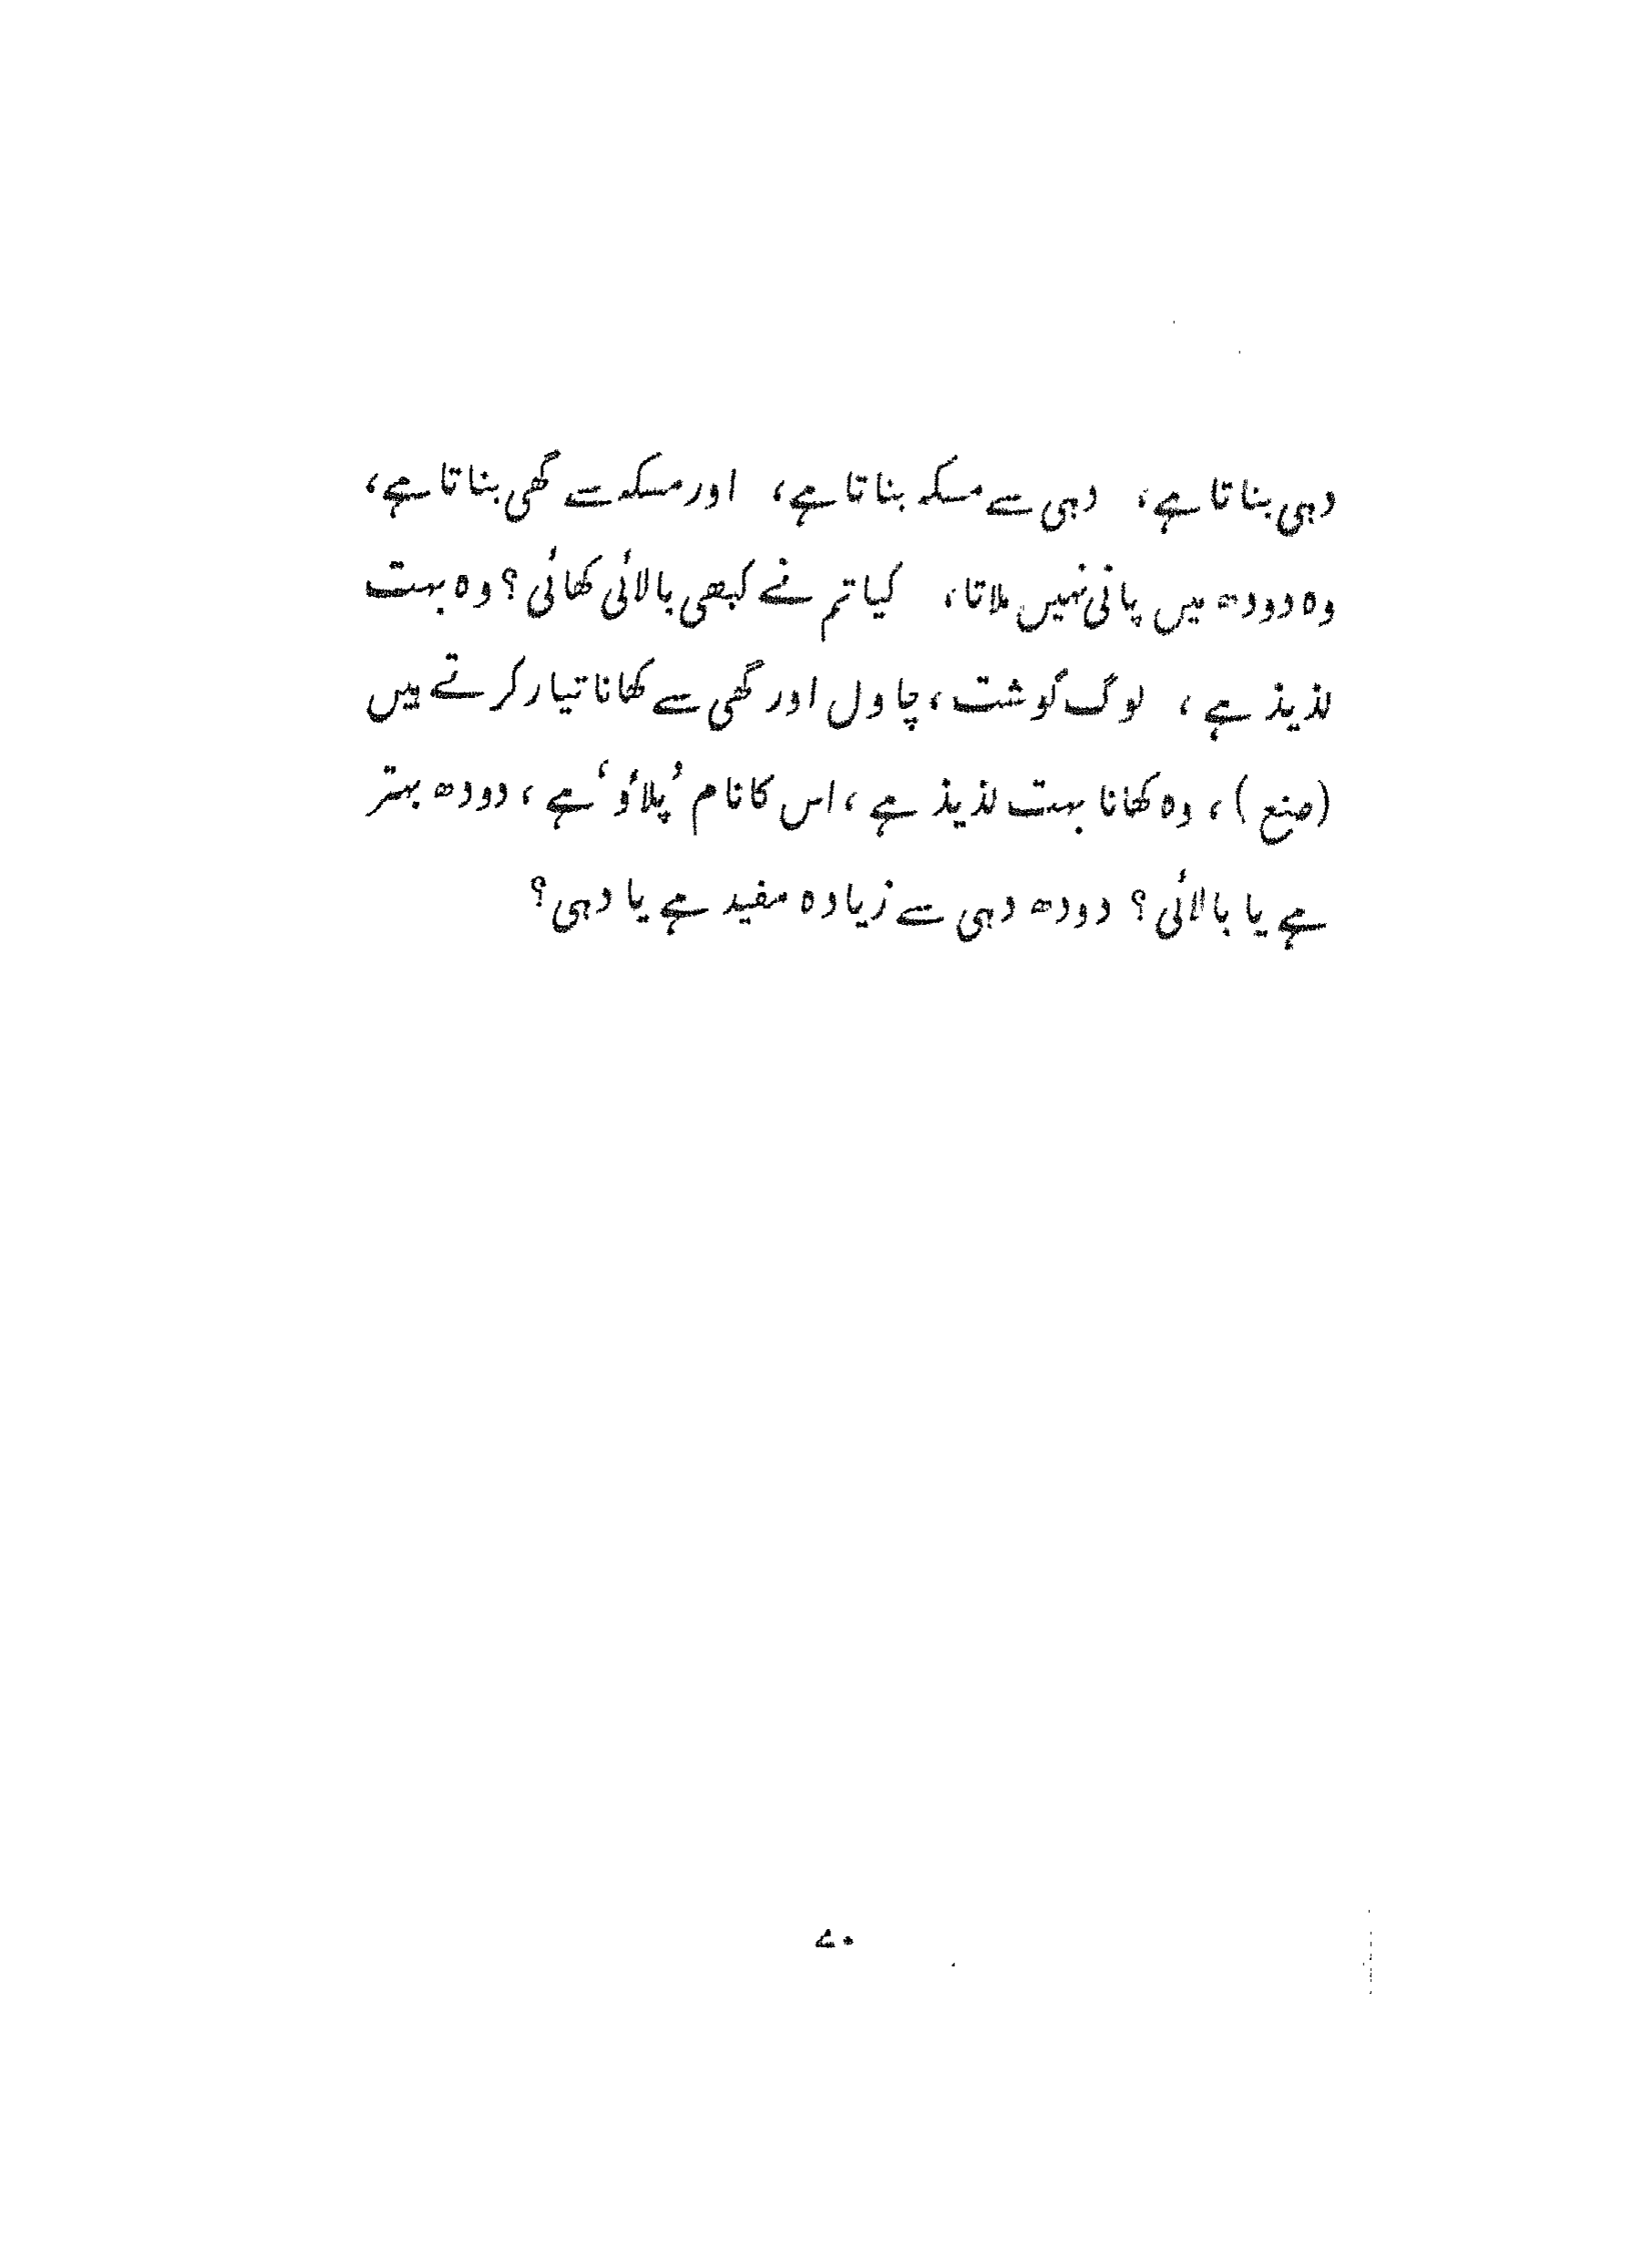 دہی بناتا ہے، دہی سے مسکہ بناتا ہے، اور مسکہ سے گھی بناتا ہے،
وہ دودھ میں پانی نہیں ملاتا، کیا تم نے کبھی بالائی کھائی؟ وہ بہت
لذیذ ہے، لوگ گوشت، چاول اور گھی سے کھانا تیار کرتے ہیں
(صنع)، وہ کھانا بہت لذیذ ہے، اس کا نام ’پلاؤ‘ ہے، دودھ بہتر
ہے یا بالائی؟ دودھ دہی سے زیادہ مفید ہے یا دہی؟
۷۰